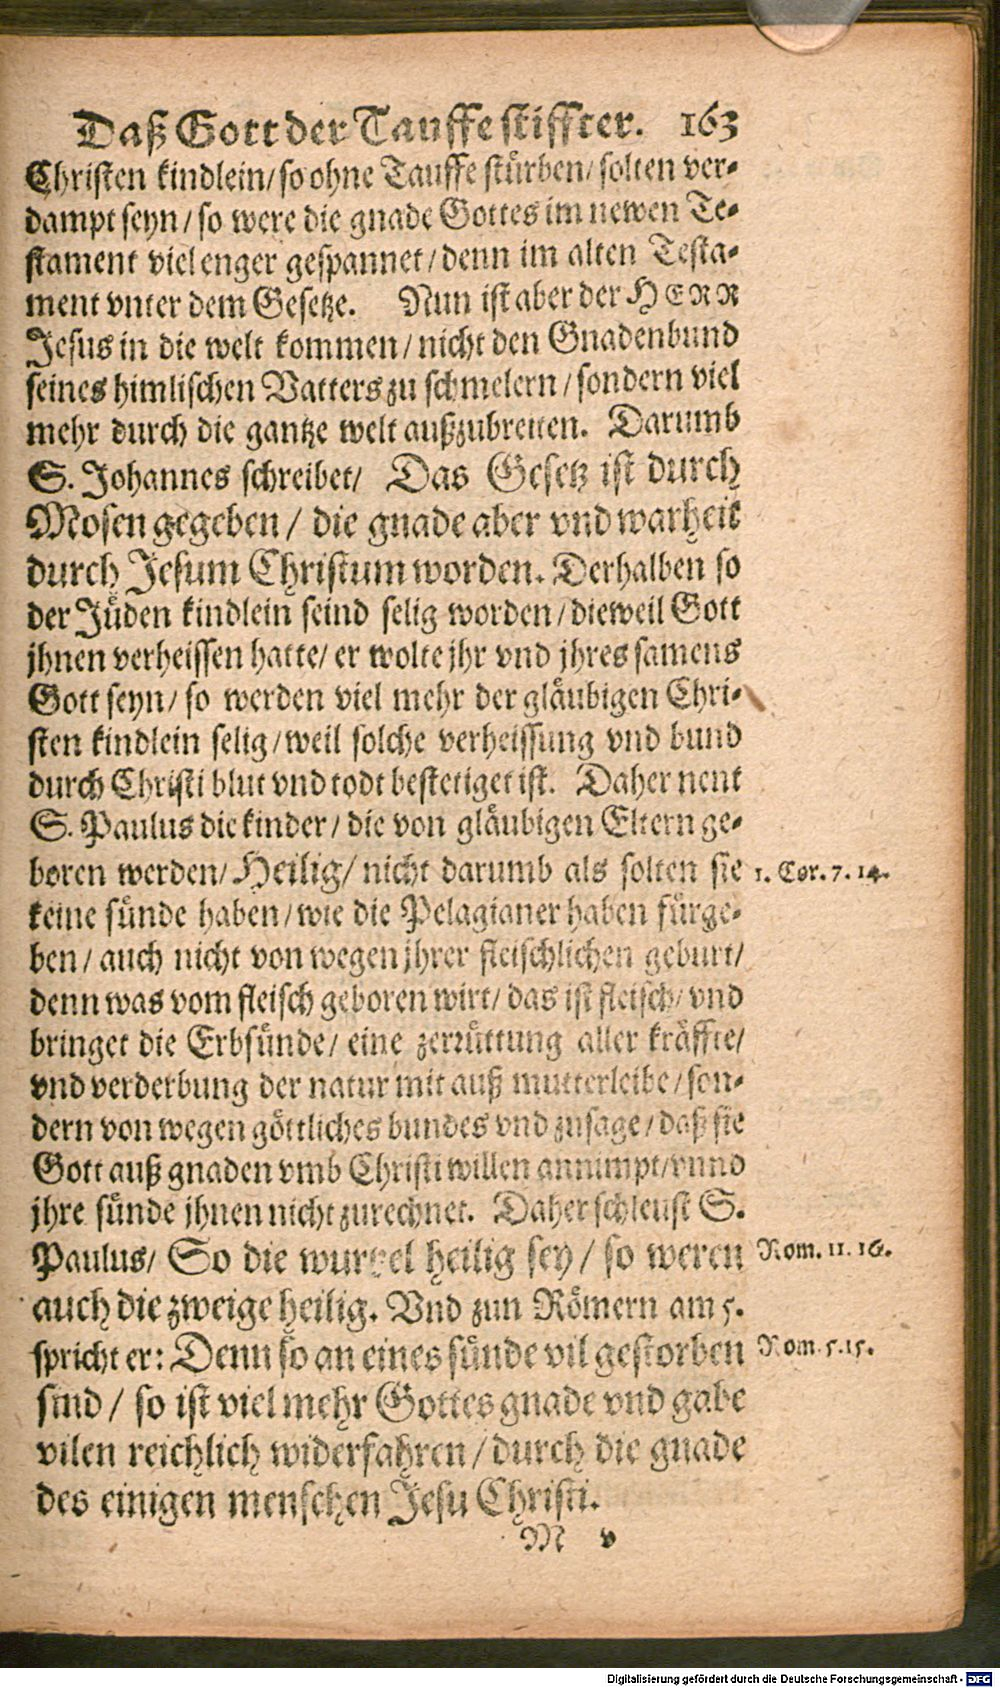 Daß Gott der Tauffe stiffter. 163
Christen kindlein/ so ohne Tauffe stürben/ solten ver-
dampt seyn/ so were die gnade Gottes im newen Te-
stament viel enger gespannet/ denn im alten Testa-
ment vnter dem Gesetze. Nun ist aber der HERR
Jesus in die welt kommen/ nicht den Gnadenbund
seines himlischen Vatters zu schmelern/ sondern viel
mehr durch die gantze welt außzubreiten. Darumb
S. Johannes schreibet/ Das Gesetz ist durch
Mosen gegeben/ die gnade aber vnd warheit
durch Jesum Christum worden. Derhalben so
der Jüden kindlein seind selig worden/ dieweil Gott
jhnen verheissen hatte/ er wolte jhr vnd jhres samens
Gott seyn/ so werden viel mehr der gläubigen Chri-
sten kindlein selig/ weil solche verheissung vnd bund
durch Christi blut vnd todt bestetiget ist. Daher nent
S. Paulus die kinder/ die von gläubigen Eltern ge-
boren werden/ Heilig/ nicht darumb als solten sie 1. Cor. 7. 14.
keine sünde haben/ wie die Pelagianer haben fürge-
ben/ auch nicht von wegen jhrer fleischlichen geburt/
denn was vom fleisch geboren wirt/ das ist fleisch/ vnd
bringet die Erbsünde/ eine zerrüttung aller kräffte/
vnd verderbung der natur mit auß mutterleibe/ son-
dern von wegen göttliches bundes vnd zusage/ daß sie
Gott auß gnaden vmb Christi willen annimpt/ vnnd
jhre sünde jhnen nicht zurechnet. Daher schleust S.
Paulus/ So die wurtzel heilig sey/ so weren Rom. 11. 16.
auch die zweige heilig. Vnd zun Römern am 5.
spricht er: Denn so an eines sünde vil gestorben Rom. 5. 15.
sind/ so ist viel mehr Gottes gnade vnd gabe
vilen reichlich widerfahren/ durch die gnade
des einigen menschen Jesu Christi.
M v
Digitalisierung gefördert durch die Deutsche Forschungsgemeinschaft - DFG